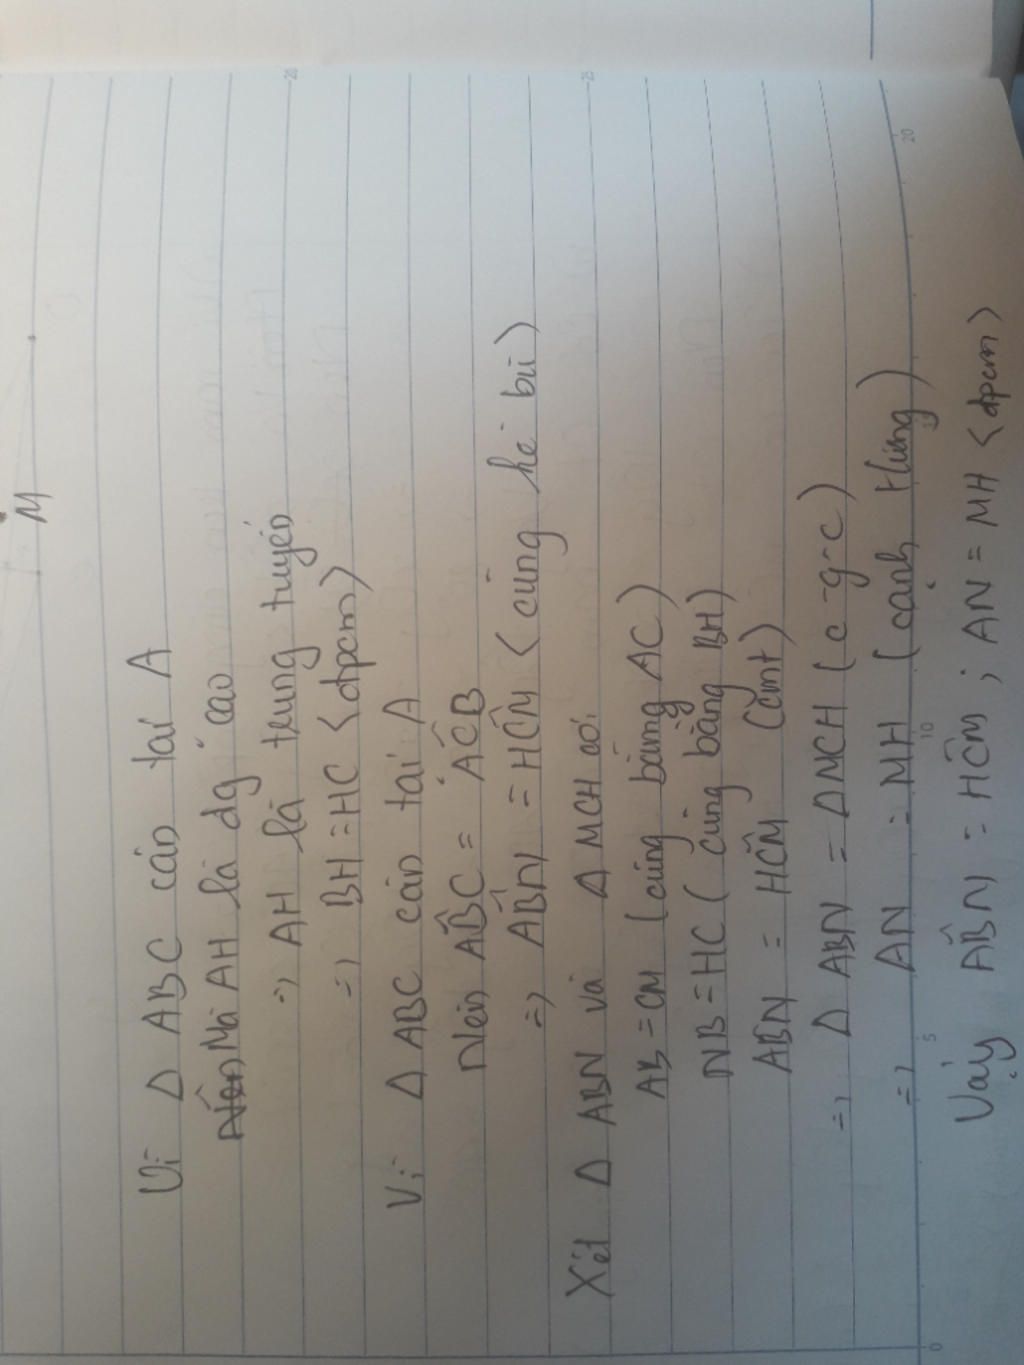 M
Vì Δ ABC cân tại A
Nên Mà AH là đg cao
=> AH là trung tuyến
=> BH = HC <đpcm>
Vì Δ ABC cân tại A
Nên ABC = ACB
=> ABN = HCM < cùng kề bù >
Xét Δ ABN và Δ MCH có:
AB = CM (cùng bằng AC)
NB = HC ( cùng bằng BH)
ABN = HCM (cmt)
=> Δ ABN = Δ MCH (c-g-c)
=> AN = MH (cạnh tương ứng)
Vậy ABN = HCM ; AN = MH <đpcm>
20
25
20
15
10
5
0